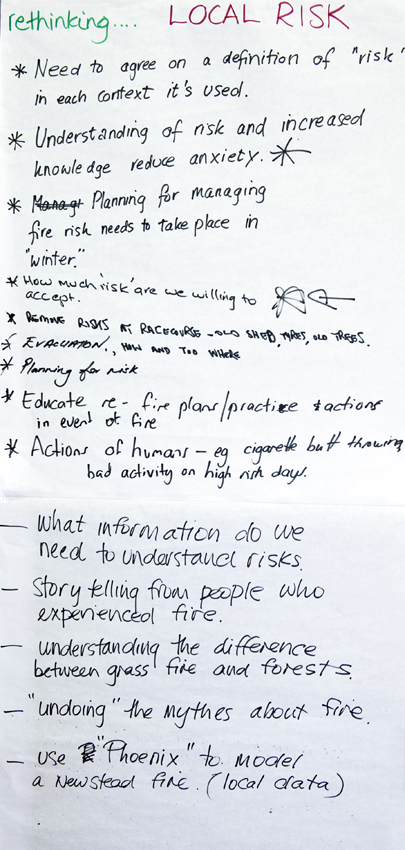 rethinking.... LOCAL RISK
* Need to agree on a definition of "risk"
in each context it's used.
* Understanding of risk and increased
knowledge reduce anxiety. *
* Managt Planning for managing
fire risk needs to take place in
"winter."
* How much 'risk' are we willing to
accept.
* REMOVE RISKS AT RACECOURSE - OLD SHED, TYRES, OLD TREES.
* EVACUATION., HOW AND TOO WHERE
* Planning for risk
* Educate re - fire plans/practice & actions
in event of fire
* Actions of humans - eg cigarette butt throwing
bad activity on high risk days.
— What information do we
need to understand risks.
— Story telling from people who
experienced fire.
— understanding the difference
between grass fire and forests.
— "undoing" the mythes about fire.
— use "Phoenix" to model
a Newstead fire. (local data)